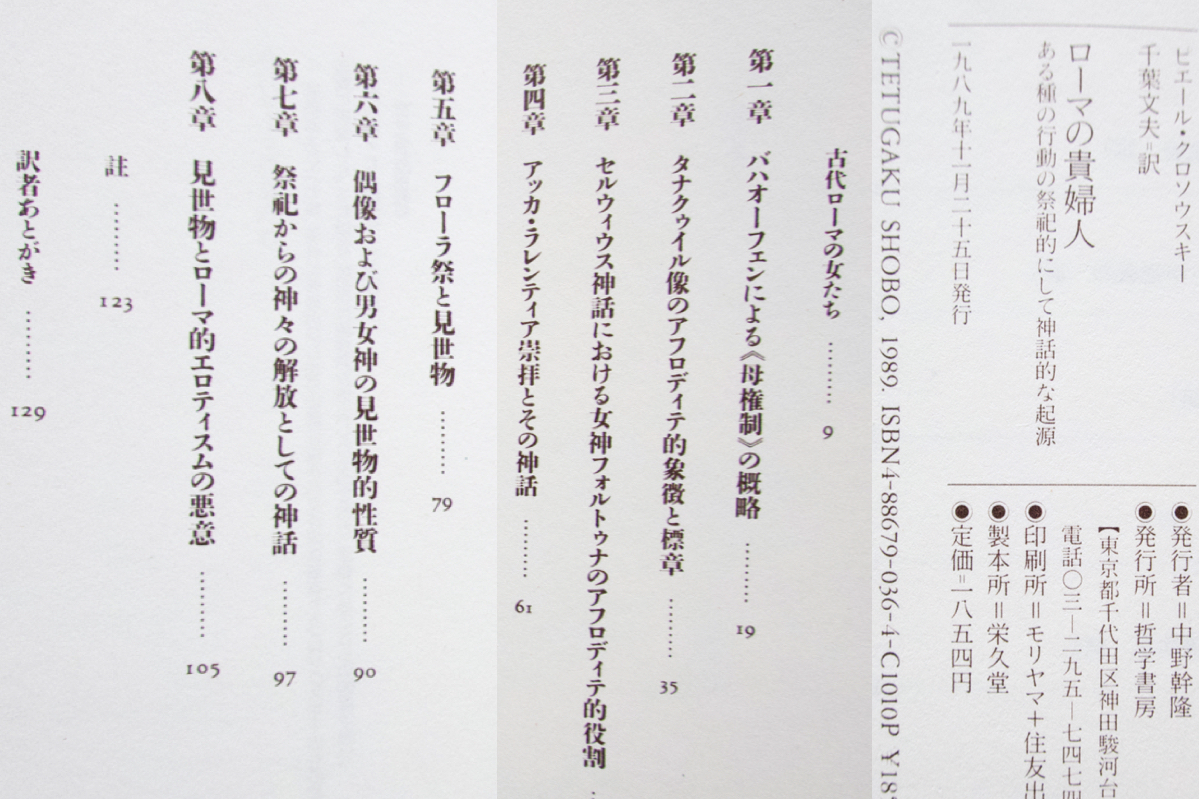 ピエール・クロソウスキー
千葉文夫=訳
ローマの貴婦人
ある種の行動の祭祀的にして神話的な起源
一九八九年十一月二十五日発行
●発行者=中野幹隆
●発行所=哲学書房
【東京都千代田区神田駿河台
電話〇三―二九五―七四七四
●印刷所=モリヤマ+住友出
●製本所=栄久堂
●定価=一八五四円
©TETUGAKU SHOBO, 1989. ISBN4-88679-036-4-C1010P ¥18
古代ローマの女たち ……… 9
第一章 バハオーフェンによる《母権制》の概略 ……… 19
第二章 タナクゥイル像のアフロディテ的象徴と標章 ……… 35
第三章 セルウィウス神話における女神フォルトゥナのアフロディテ的役割
第四章 アッカ・ラレンティア崇拝とその神話 ……… 61
第五章 フローラ祭と見世物 ……… 79
第六章 偶像および男女神の見世物的性質 ……… 90
第七章 祭祀からの神々の解放としての神話 ……… 97
第八章 見世物とローマ的エロティスムの悪意 ……… 105
註 ……… 123
訳者あとがき ……… 129